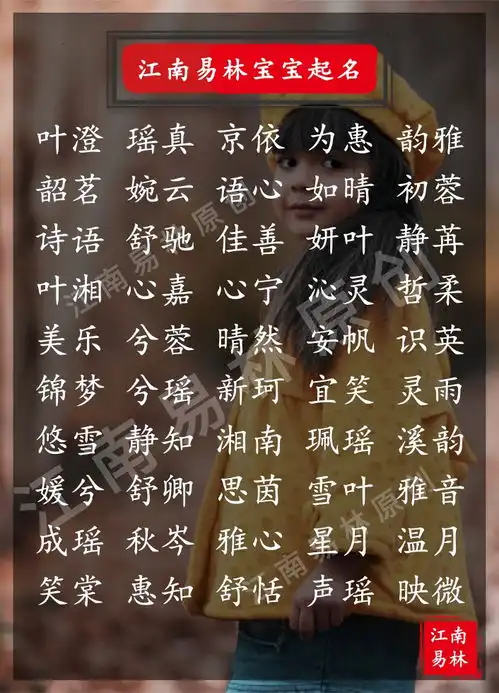 江南易林宝宝起名
叶澄 瑶真 京依 为惠 韵雅
韶茗 婉云 语心 如晴 初蓉
诗语 舒驰 佳善 妍叶 静苒
叶湘 心嘉 心宁 沁灵 哲柔
美乐 兮蓉 晴然 安帆 识英
锦梦 兮瑶 新珂 宜笑 灵雨
悠雪 静知 湘南 珮瑶 溪韵
媛兮 舒卿 思茵 雪叶 雅音
成瑶 秋岑 雅心 星月 温月
笑棠 惠知 舒恬 声瑶 映微
江南
易林
江南易林原创
江南易林原创
江南易林原创